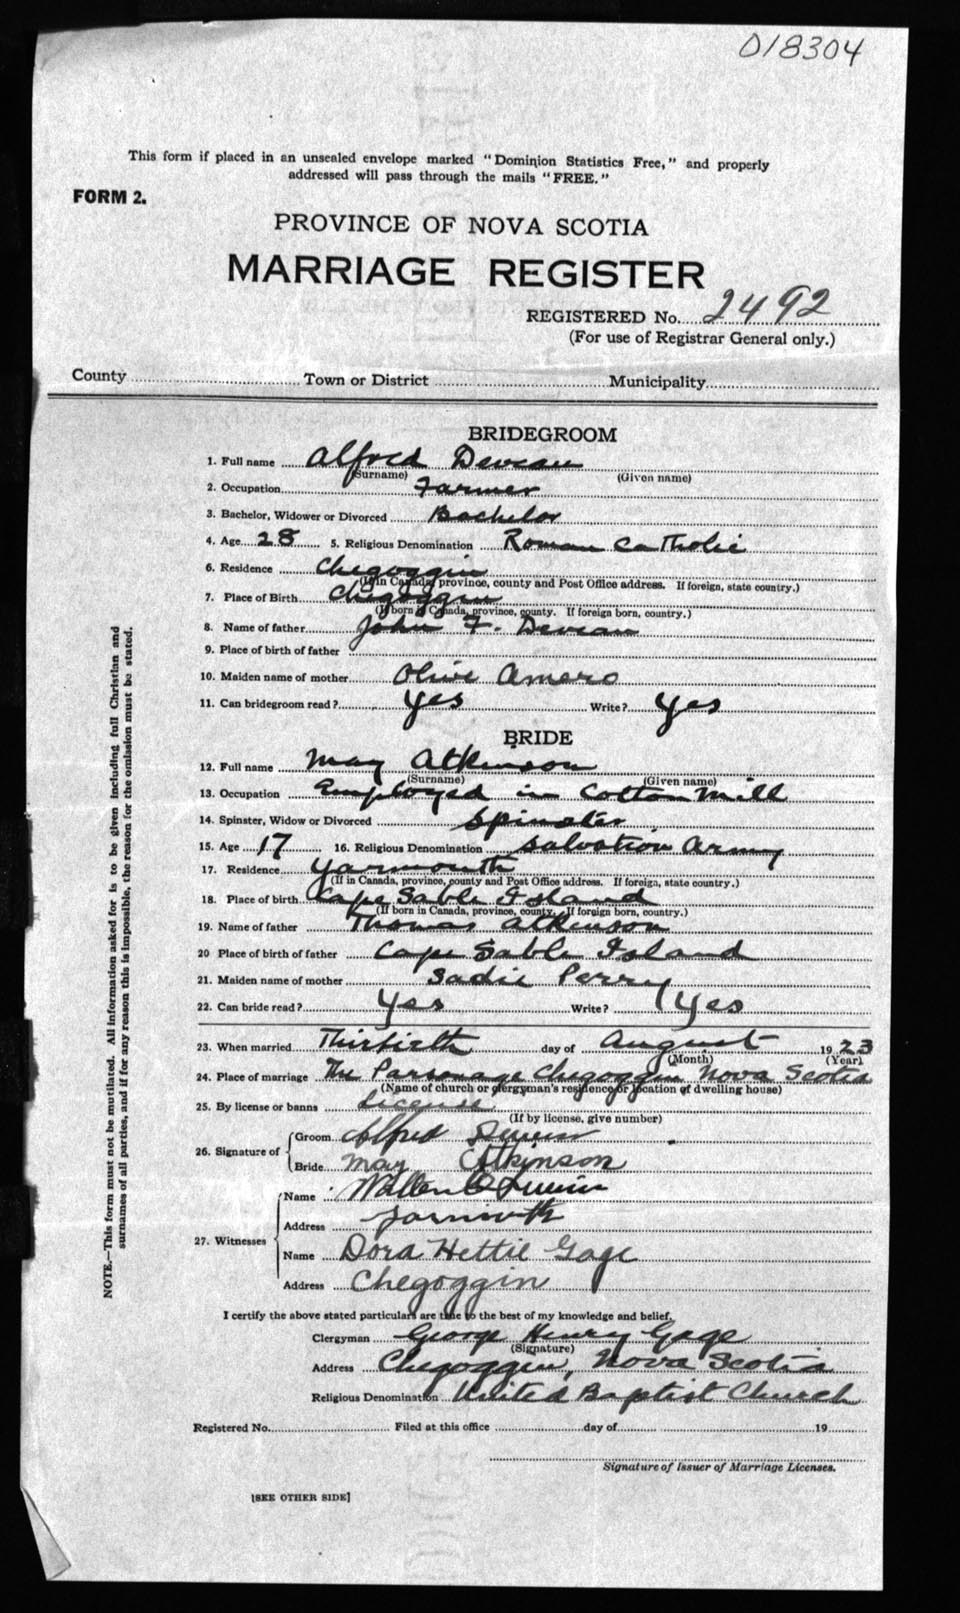 018304
This form if placed in an unsealed envelope marked "Dominion Statistics Free," and properly
addressed will pass through the mails "FREE."
FORM 2.
PROVINCE OF NOVA SCOTIA
MARRIAGE REGISTER
REGISTERED No. 2492
(For use of Registrar General only.)
County Town or District Municipality
BRIDEGROOM
1. Full name Alfred Deveau
(Surname) (Given name)
2. Occupation Farmer
3. Bachelor, Widower or Divorced Bachelor
4. Age 28 5. Religious Denomination Roman Catholic
6. Residence Chegoggin
(If in Canada, province, county and Post Office address. If foreign, state country.)
7. Place of Birth Chegoggin
(If born in Canada, province, county. If foreign born, country.)
8. Name of father John F. Deveau
9. Place of birth of father
10. Maiden name of mother Olive Amero
11. Can bridegroom read? Yes Write? Yes
BRIDE
12. Full name May Atkinson
(Surname) (Given name)
13. Occupation Employed in Cotton Mill
14. Spinster, Widow or Divorced Spinster
15. Age 17 16. Religious Denomination Salvation Army
17. Residence Yarmouth
(If in Canada, province, county and Post Office address. If foreign, state country.)
18. Place of birth Cape Sable Island
(If born in Canada, province, county. If foreign born, country.)
19. Name of father Thomas Atkinson
20 Place of birth of father Cape Sable Island
21. Maiden name of mother Sadie Perry
22. Can bride read? Yes Write? Yes
23. When married Thirtieth day of August 1923
(Month) (Year)
24. Place of marriage The Parsonage Chegoggin Nova Scotia
(Name of church or clergyman's residence or location of dwelling house)
25. By license or banns License
(If by license, give number)
26. Signature of
Groom Alfred
Bride May Atkinson
27. Witnesses
Name
Address Yarmouth
Name Dora Hettie Gage
Address Chegoggin
I certify the above stated particulars are true to the best of my knowledge and belief,
Clergyman George Henry Gage
(Signature)
Address Chegoggin, Nova Scotia
Religious Denomination United Baptist Church
Registered No. Filed at this office day of 19
Signature of Issuer of Marriage Licenses.
[SEE OTHER SIDE]
NOTE.—This form must not be mutilated. All information asked for is to be given including full Christian and
surnames of all parties, and if for any reason this is impossible, the reason for the omission must be stated.